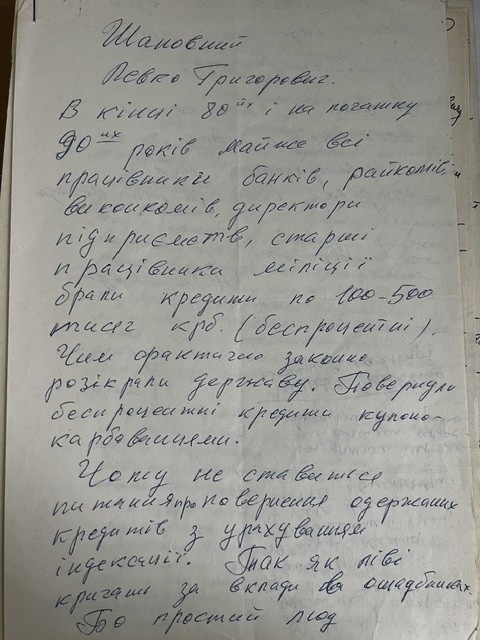 Шановний
Левко Григорович.
В кінці 80их і на початку
90их років майже всі
працівники банків, райкомів,
виконкомів, директори
підприємств, старші
працівники міліції
брали кредити по 100-500
тисяч крб. (беспроцентні).
Чим фактично законно
розікрали державу. Повернули
беспроцентні кредити купоно-
карбованцями.
Чому не ставиться
питання про повернення одержаних
кредитів з урахуванням
індексації. Так як ліві
кричать за вклади в ощадбанках.
Бо простий люд